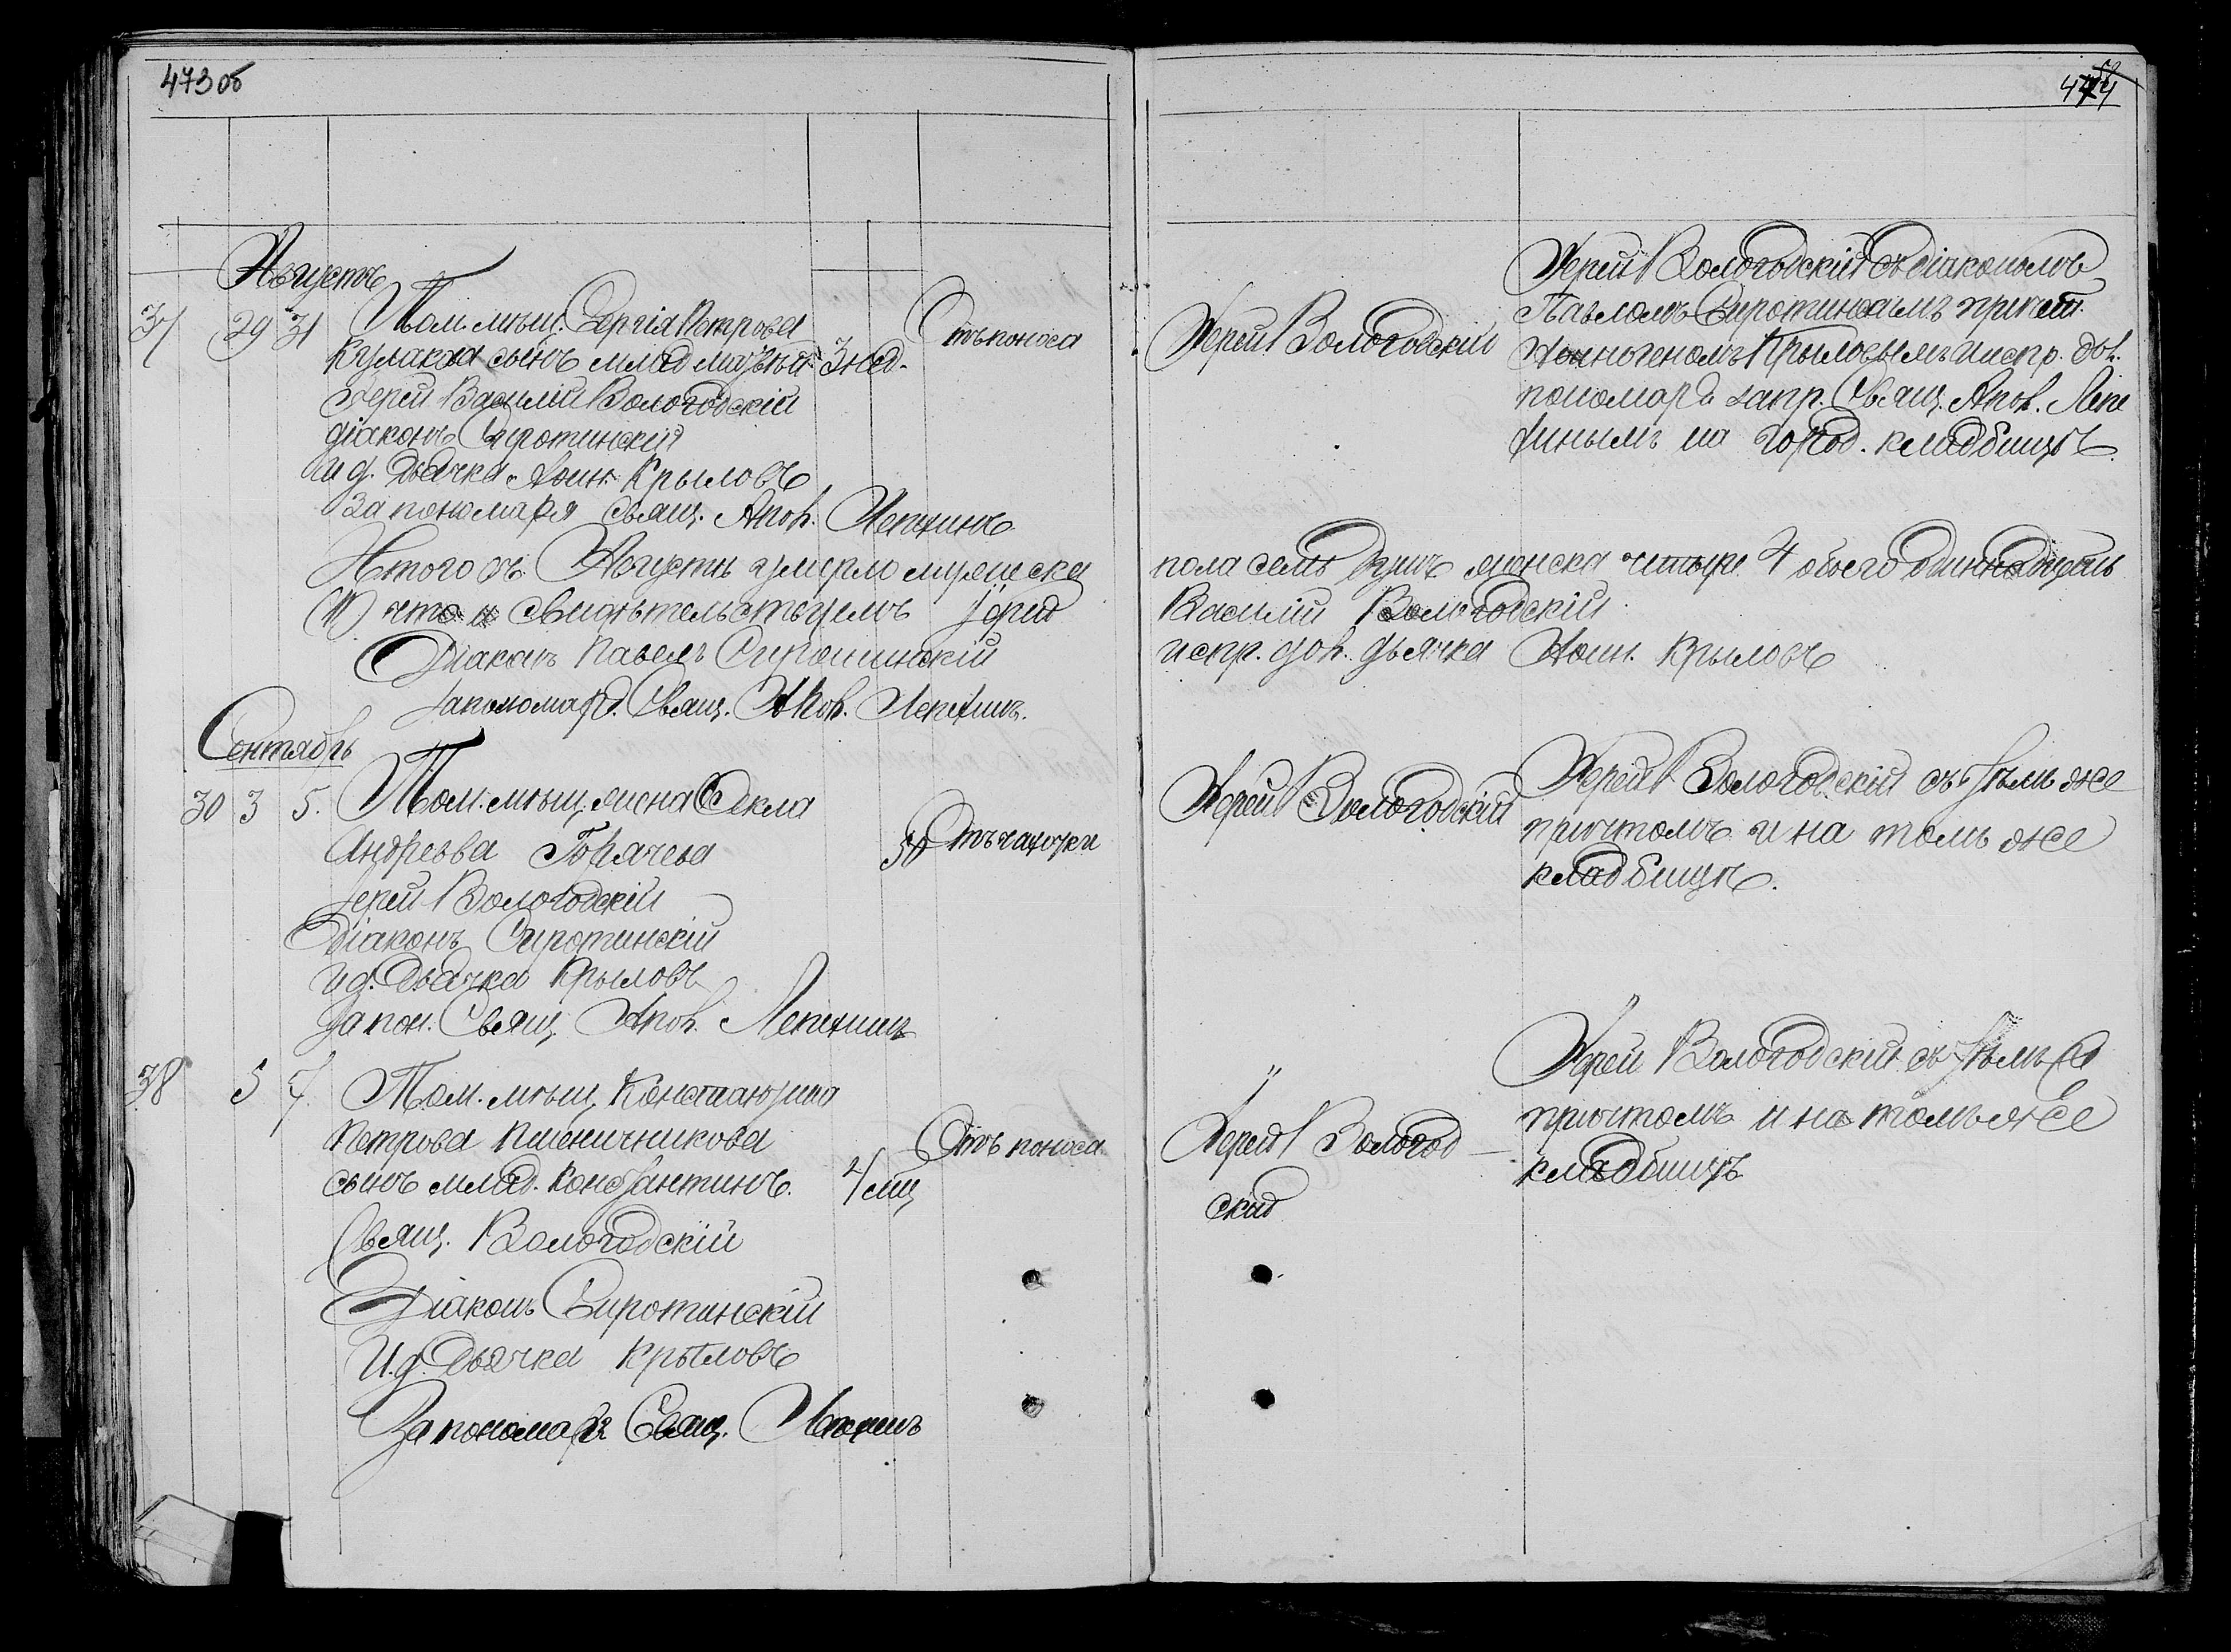 473 об
Августъ
37 29 31 Том. мѣщ. Сергія Петрова
Кулакова сынъ млад. 3 нед. Отъ поноса
Іерей Василій Вологодскій
діаконъ Сиротинскій
и д. дьячка Аѳин. Крыловъ
За пономаря Свящ. Апол. Лепехинъ
Итого въ Августѣ умерло мужеска
(11) что и свидѣтельствуемъ Іерей
Діаконъ Павелъ Сиротинскій
За пономар. Свящ. Апол. Лепехинъ.
Сентябрь
30 3 5. Том. мѣщ. жена Ѳекла
Андреева Горячева 50 Отъ чахотки
Іерей Вологодскій
Діаконъ Сиротинскій
и д. Дьячка Крыловъ
За пон. Свящ. Апол. Лепехинъ
38 5 7. Том. мѣщ. Константина
Петрова Пшеничникова Отъ поноса
сынъ млад. Константинъ. 4 мц
Свящ. Вологодскій
Діаконъ Сиротинскій
И. д. Дьячка Крыловъ
За пономаря Свящ. Лепехинъ
474
Іерей В Вологодскій съ діакономъ
Іерей В Вологодскій Павломъ Сиротинскимъ причет.
Аѳиногеномъ Крыловымъ и испр. дол.
пономаря запр. Свящ. Апол. Лепе
хинымъ на город. кладбищѣ.
пола семь душъ женска четыре 4 обоего одиннадцать
Василій Вологодскій
испр. дол. дьячка Аѳин. Крыловъ
Іерей В Вологодскій Іерей В. Вологодскій съ тѣмъ же
причтомъ и на томъ же
кладбищѣ.
Іерей Вологодскій съ тѣмъ же
Іерей В Вологод причтомъ и на томъ же
скій кладбищѣ